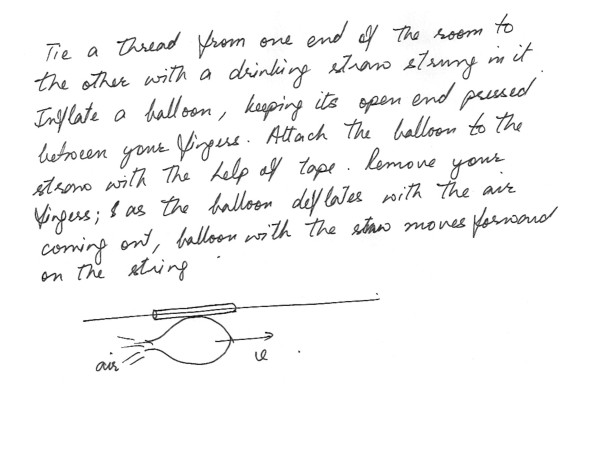 Tie a thread from one end of the room to
the other with a drinking straw strung in it.
Inflate a balloon, keeping its open end pressed
between your fingers. Attach the balloon to the
straw with the help of tape. Remove your
fingers; & as the balloon deflates with the air
coming out, balloon with the straw moves forward
on the string.
air
v